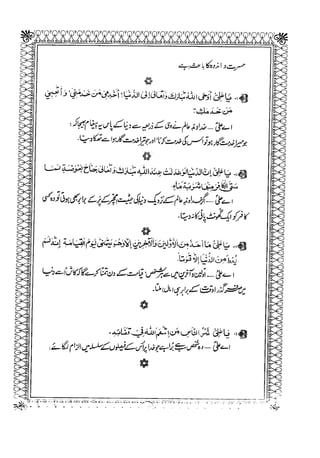 مسرت و اندوہ کا باعث ہے
يَا عَلِيُّ اَوْحَى اللهُ تَبَارَكَ وَتَعَالَى اِلَى الدُّنْيَا: اُخْدُمِىْ مَنْ خَدَمَنِىْ وَ اَتْعِبِىْ
مَنْ خَدَمَكِ.
اے علیؑ — خداوند عالم نے وحی کے ذریعہ سے دنیا کے پاس یہ پیغام بھیجا کہ:
جو میرا خدمت گار ہو تو اس کی خدمت کرنا اور جو تیرا خدمت گار ہو اسے تھکا دینا.
يَا عَلِيُّ اِنَّ الدُّنْيَا لَوْ عَدَلَتْ عِنْدَ اللهِ تَبَارَكَ وَتَعَالَى جَنَاحَ بَعُوْضَةٍ لَمَا
سَقَى الْكَافِرَ مِنْهَا شَرْبَةَ مَاءٍ
اے علیؑ — اگر خداوند عالم کے نزدیک دنیا کی حیثیت مچھر کے پر کے برابر بھی ہوتی تو وہ کسی
کافر کو ایک گھونٹ پانی کا نہ دیتا.
يَا عَلِيُّ مَا اَحَدٌ مِنَ الْاَوَّلِيْنَ وَالْاٰخِرِيْنَ اِلَّا وَهُوَ يَتَمَنّٰى يَوْمَ الْقِيَامَةِ اَنَّهُ لَمْ
يُعْطَ مِنَ الدُّنْيَا اِلَّا قُوْتًا.
اے علیؑ — اولین و آخرین میں سے ہر شخص قیامت کے دن تمنا کرے گا کہ کاش! اسے دنیا
میں صرف گذر اوقات کے برابر ہی مال ملتا.
يَا عَلِيُّ شَرُّ النَّاسِ مَنِ اتَّهَمَ اللهَ فِىْ قَضَائِهِ.
اے علیؑ — وہ شخص سب سے برا ہے جو خدا پر اس کے فیصلوں کے سلسلہ میں الزام لگائے.